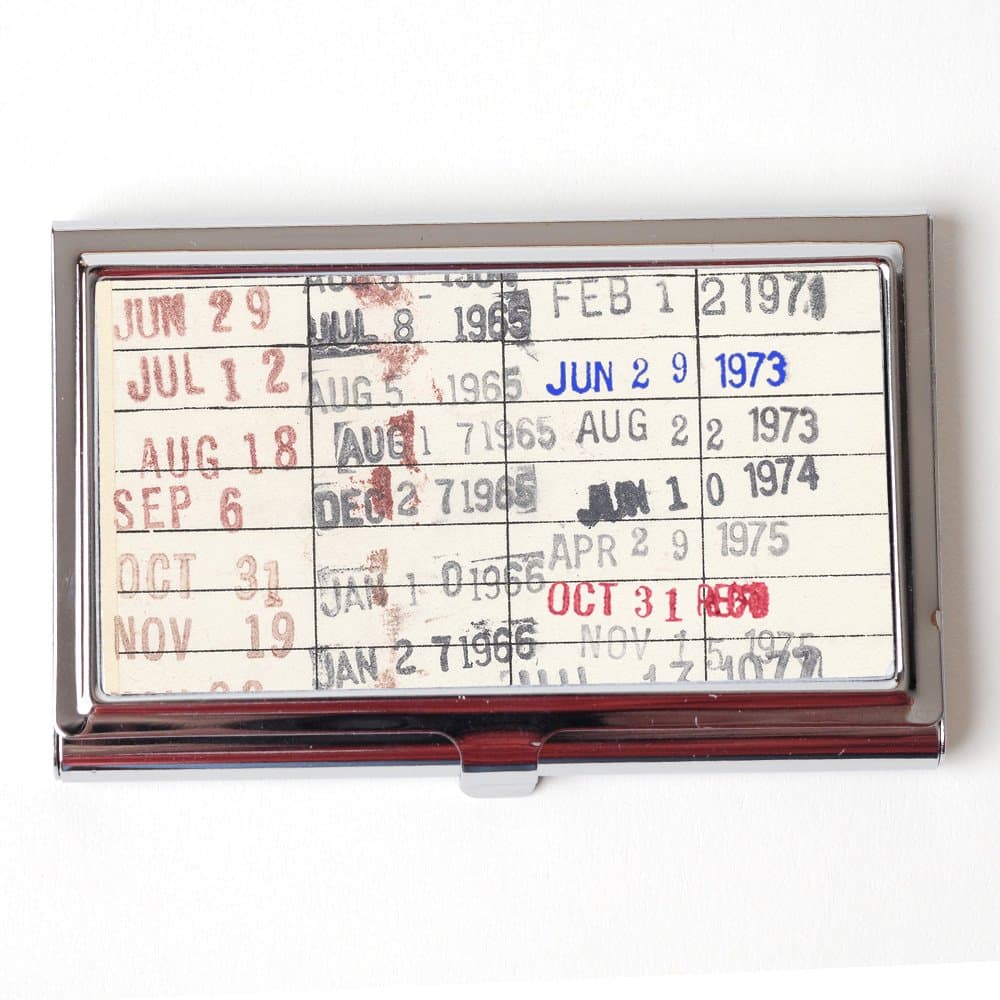 JUN 29
JUL 12
AUG 18
SEP 6
OCT 31
NOV 19
JUL 8 1965
AUG 5 1965
AUG 1 7 1965
DEC 2 7 1965
JAN 1 0 1966
JAN 2 7 1966
FEB 1 2 1971
JUN 2 9 1973
AUG 2 2 1973
JUN 1 0 1974
APR 2 9 1975
OCT 3 1
NOV 1 5 1975